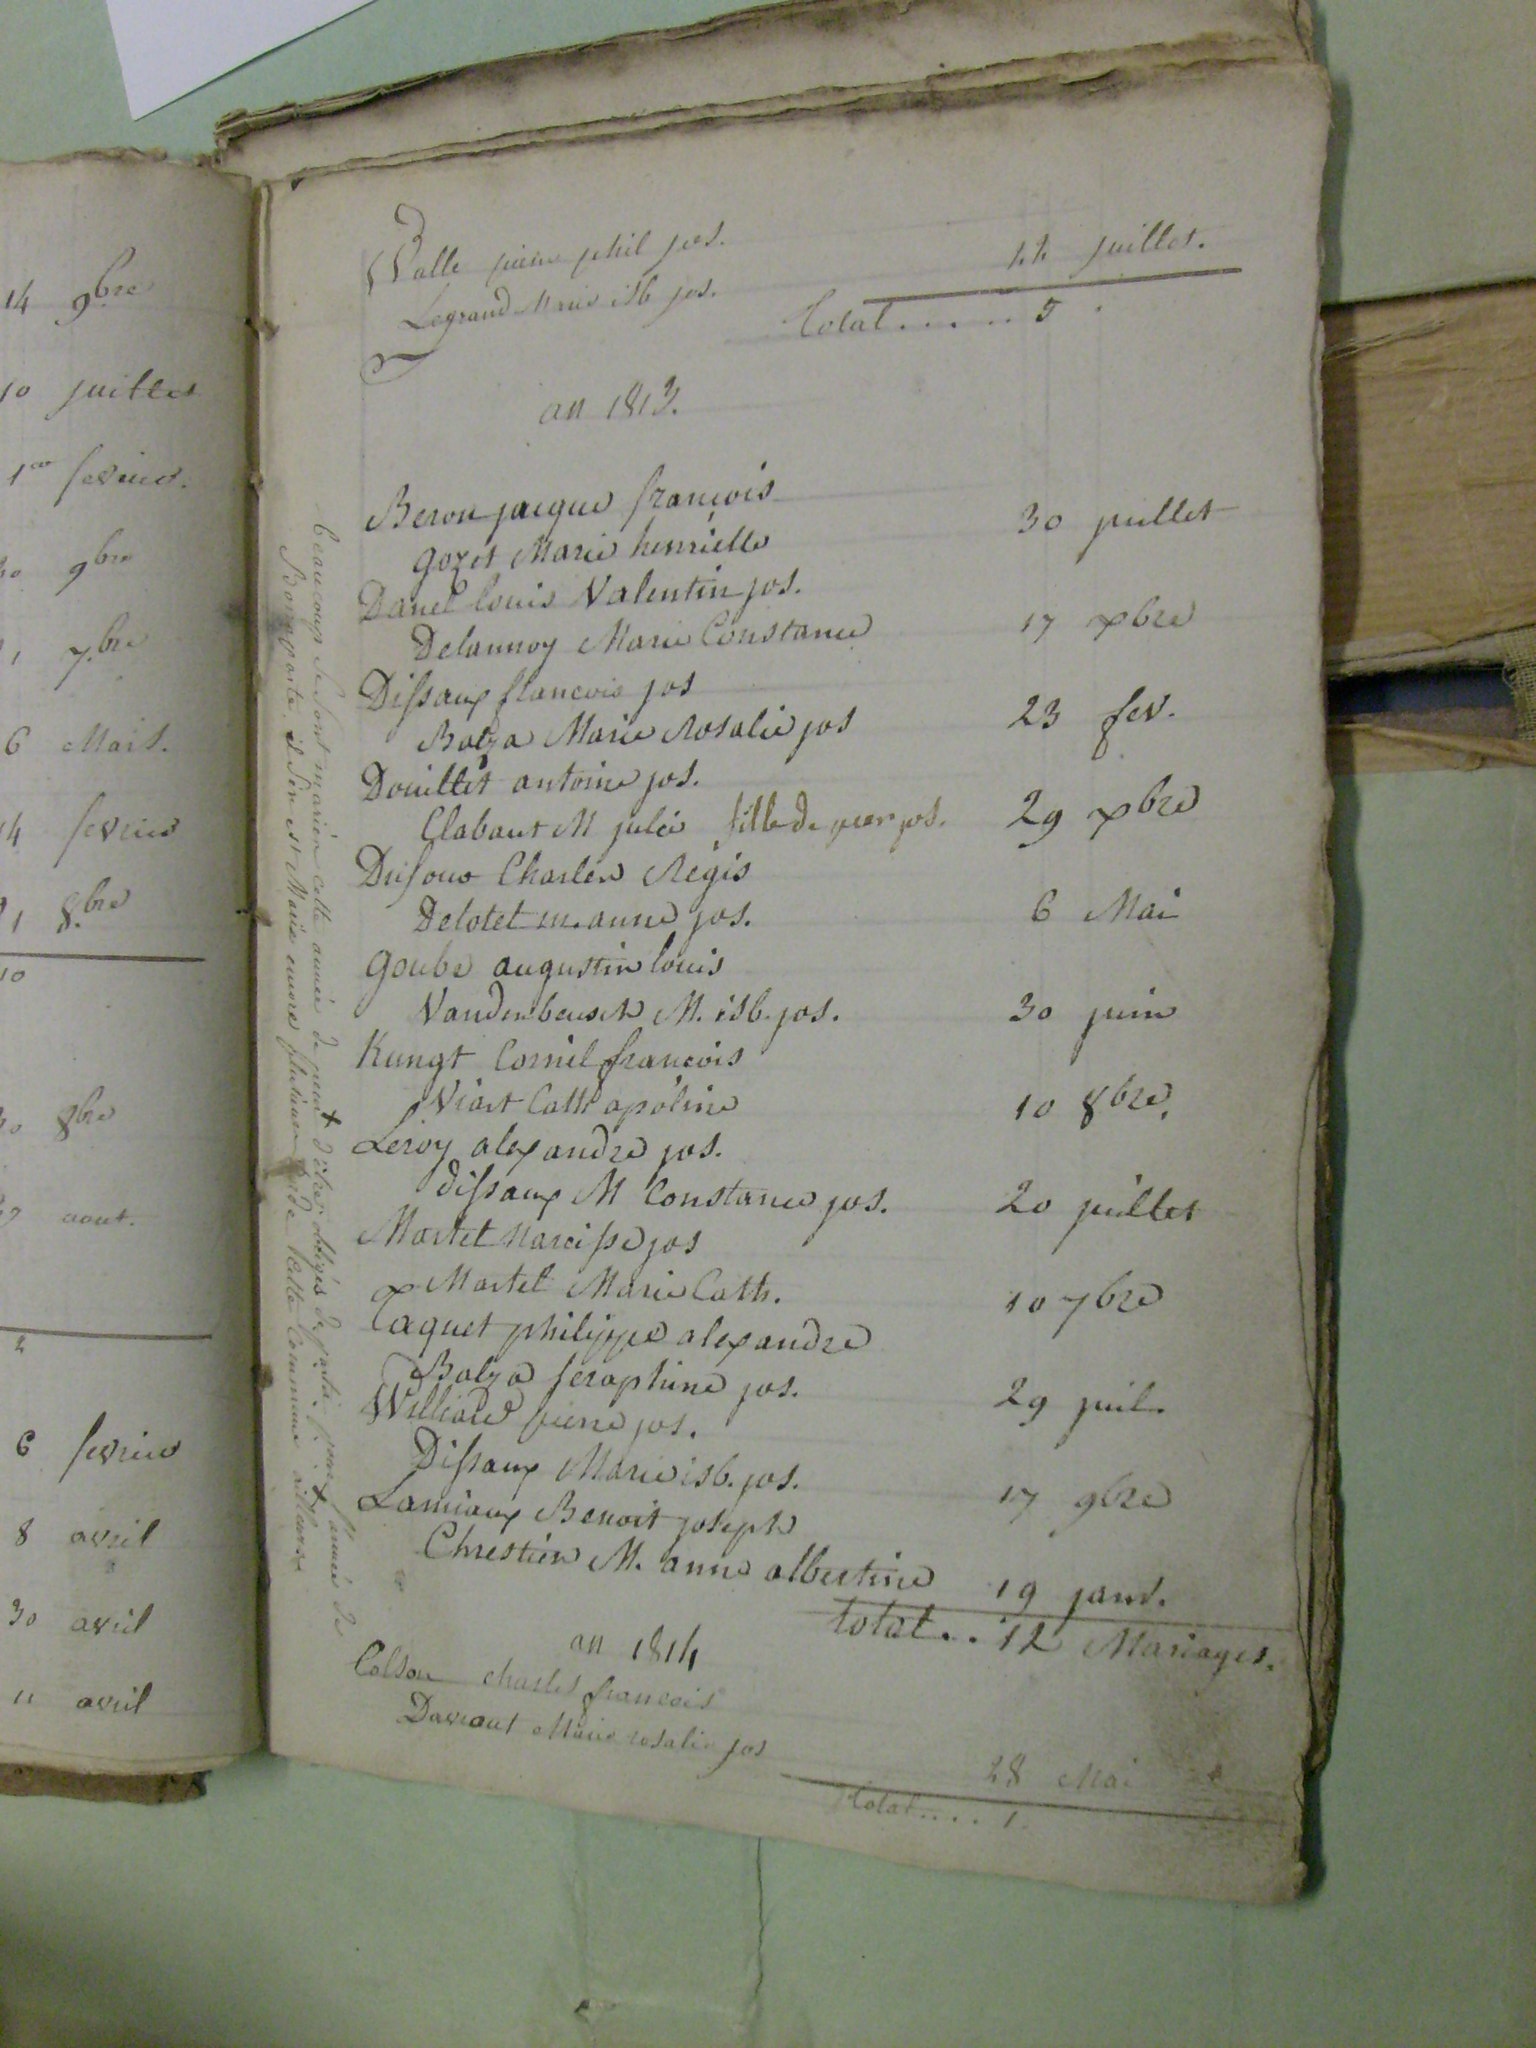 14 9bre
10 juillet
1er fevrier.
30 9bre
1 7.bre
6 Mars.
14 fevrier
1 8.bre
10
8bre
aout.
2
6 fevrier
8 avril
30 avril
11 avril
Walle pierre phil jos.
Legrand Marie isb. jos. 22 juillet.
total...... 5
an 1813.
Beron jacque françois
gozet Marie henriette 30 juillet
Danel louis Valentin jos.
Delannoy Marie Constance 17 xbre
Dissaux francois jos
Balza Marie Rosalie jos 23 fev.
Douillet antoine jos.
Clabaut M julie fille de pierre jos. 29 xbre
Dufour Charles Régis
Delotel m. anne jos. 6 Mai
goube augustin louis
Vandenbeusch M. isb. jos. 30 juin
Kungt Cornil francois
Viart Cath apoline 10 8bre.
Leroy alexandre jos.
dissaux M Constance jos. 20 juillet
Martel Narcisse jos
Martel Marie Cath. 10 7bre
Taquet philippe alexandre
Balza seraphine jos. 29 juil.
Williard pierre jos.
Dissaux Marie isb. jos. 17 9bre
Lamiaux Benoit joseph
Chrestien M. anne albertine 19 janv.
total.. 12 Mariages.
an 1814
Colson charles françois
Davrout Marie rosalie jos 28 Mai
total.... 1.
beaucoup se sont mariés cette année de peur d'etre obligés de partir pour l'armée de
Bonaparte, il s'en est Marié encore plusieurs de cette Commune ailleurs